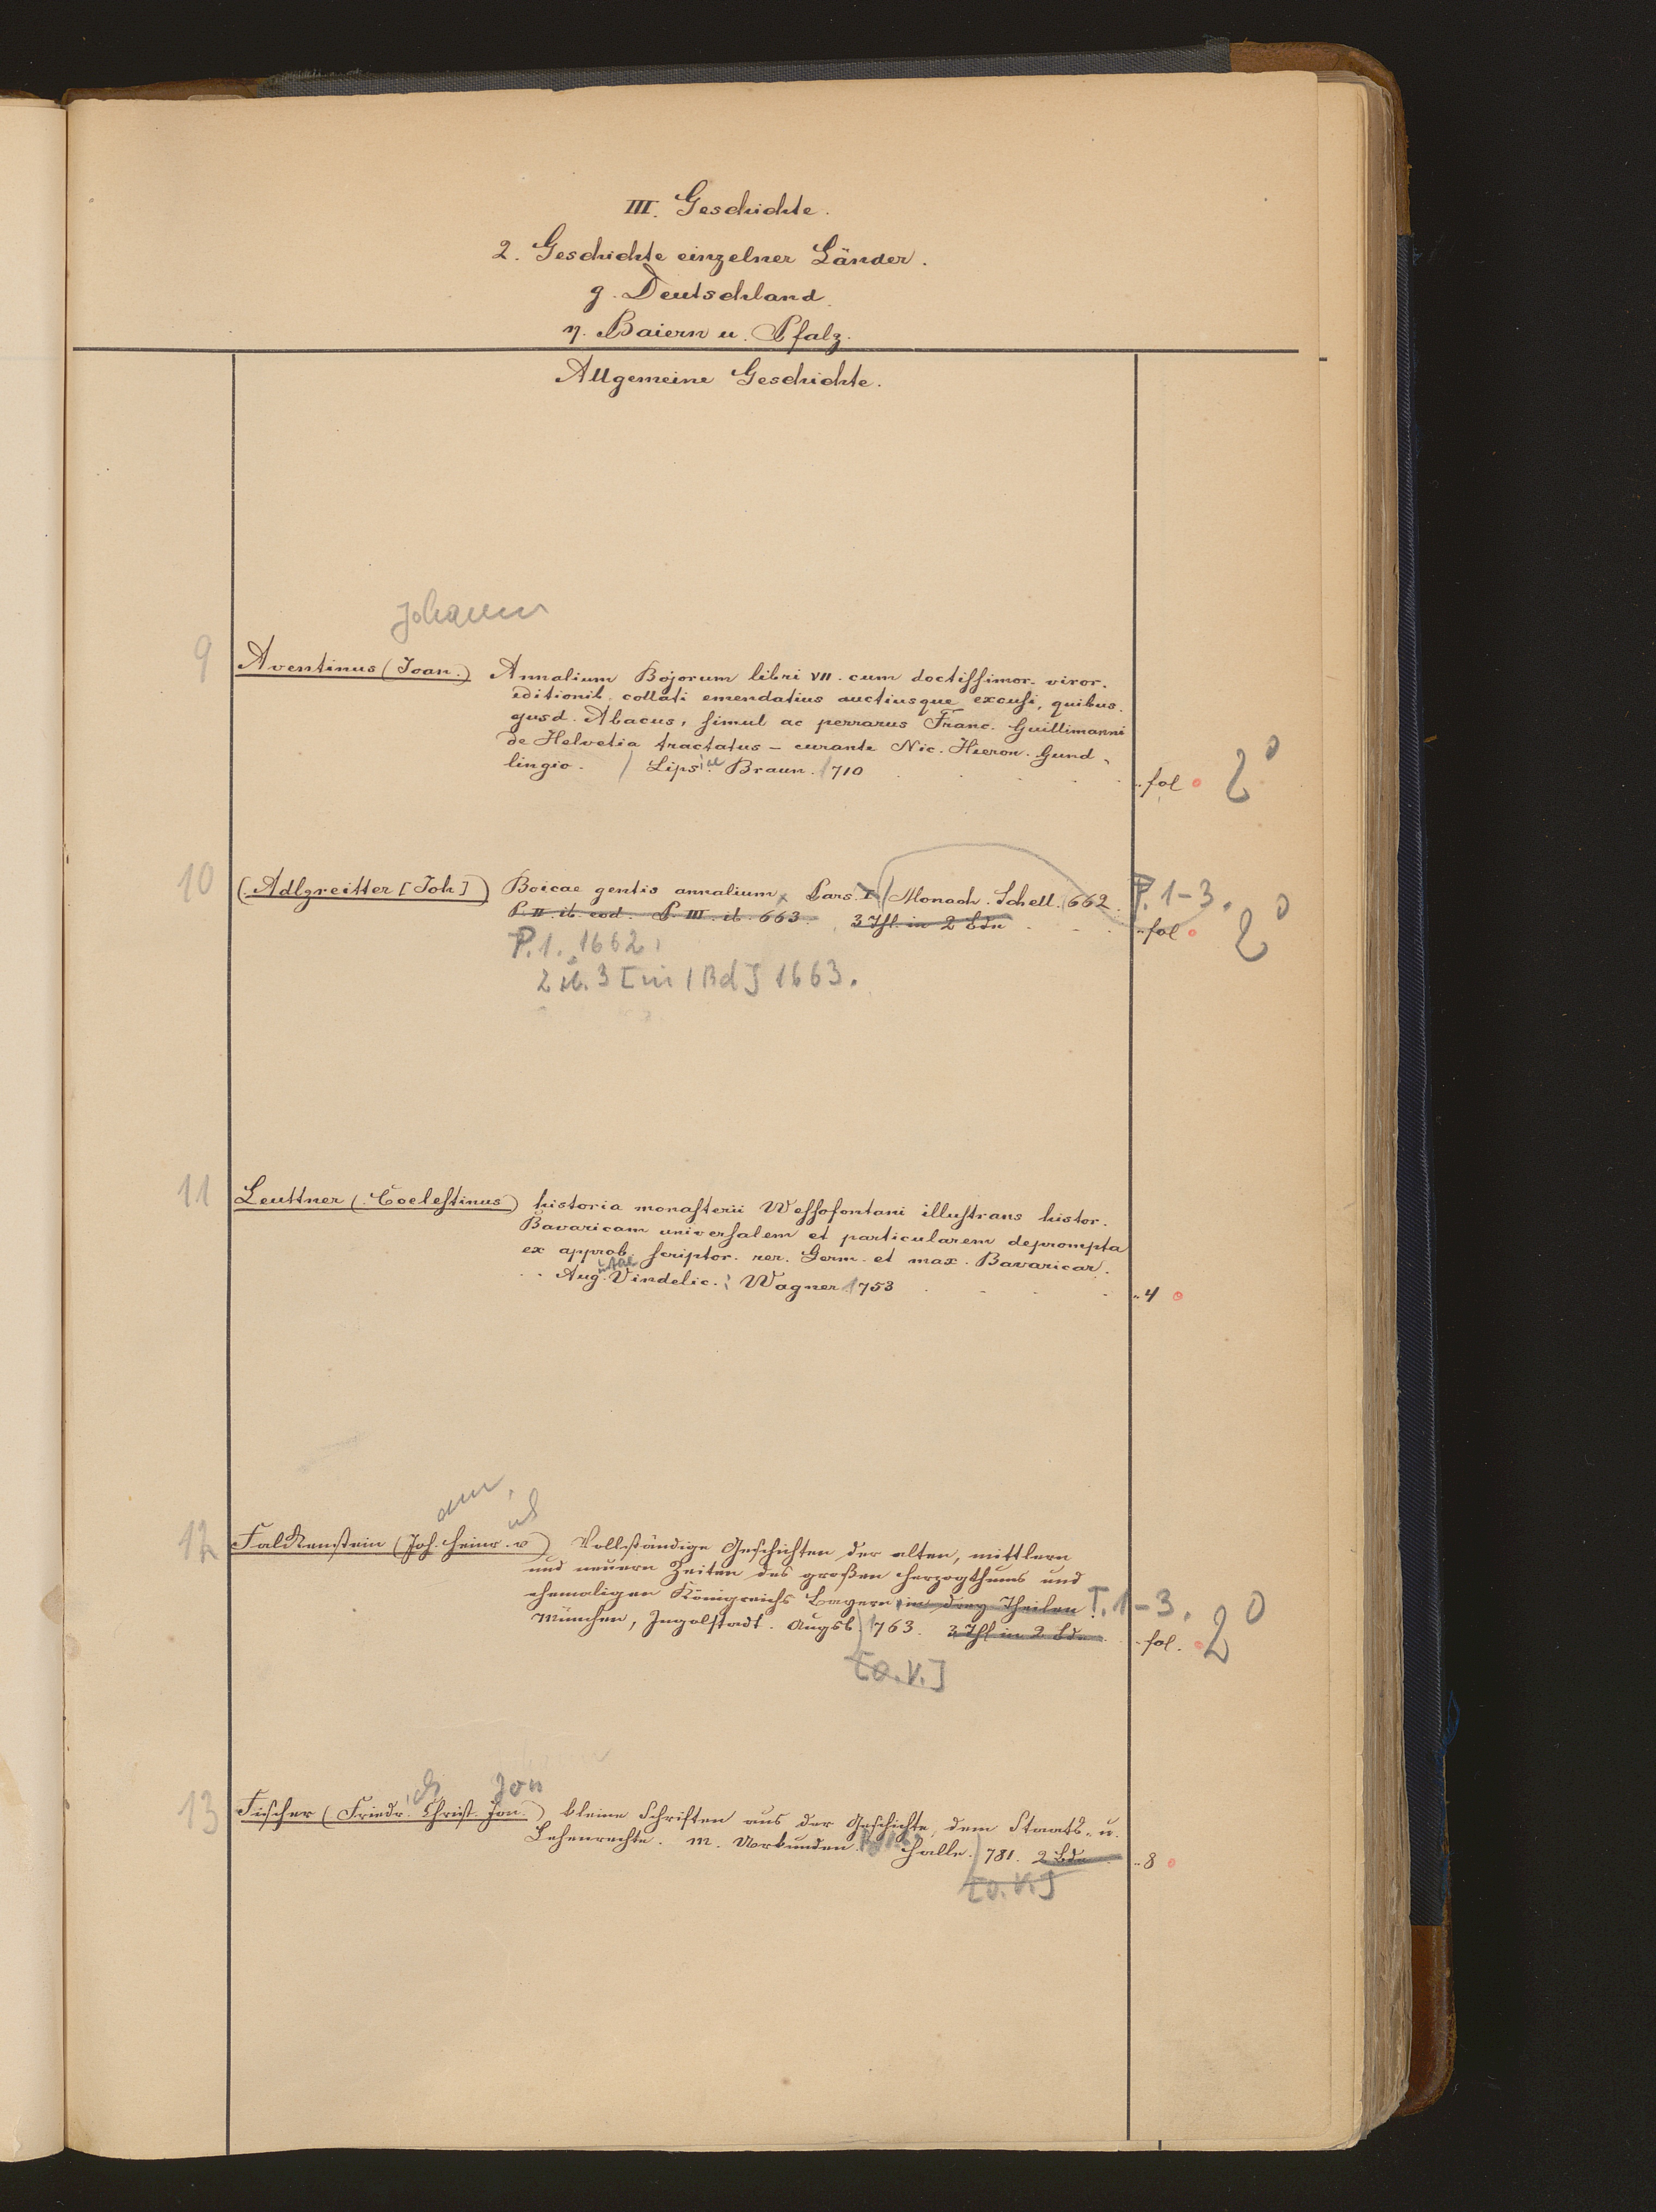 III. Geschichte.
2. Geschichte einzelner Länder.
g. Deutschland.
η. Baiern u. Pfalz.
Allgemeine Geschichte.
Johann
9 Aventinus (Joan.) Annalium Bojorum libri VII. cum doctissimor. viror.
editionib. collati emendatius auctiusque excusi, quibus.
ejusd. Abacus, simul ac perrarus Franc. Guillimanni
de Helvetia tractatus – curante Nic. Hieron. Gund-
lingio. Lips. Braun. 1710 fol 2°
10 (Adlzreitter [Joh]) Boicae gentis annalium Pars. I. Monach. Schell. 662. P. 1-3.
P. II. ib. eod. P. III. ib. 663. 3 Thl. in 2 Bdn fol 2°
P. 1. 1662,
2 u. 3 [in 1 Bd] 1663.
11 Leuttner (Coelestinus) historia monasterii Wessofontani illustrans histor.
Bavaricam universalem et particularem deprompta
ex approb. scriptor. rer. Germ. et max. Bavaricar.
Augustae Vindelic. : Wagner 1753 4
ann, ich
12 Falckenstein (Joh. Heinr. v) Vollständige Geschichten der alten, mittlern
und neuern Zeiten des großen Herzogthums und
ehemaligen Königreichs Bayern in drey Theilen T. 1-3.
München, Ingolstadt. Augsb. 1763. 3 Thl in 2 Bdn. fol. 2°
[o. V.]
ch Jon
13 Fischer (Friedr. Christ. Jon.) kleine Schriften aus der Geschichte, dem Staats- u.
Lehenrechte. m. Urkunden. Halle. 781. 2 Bde 8
[o. V.]